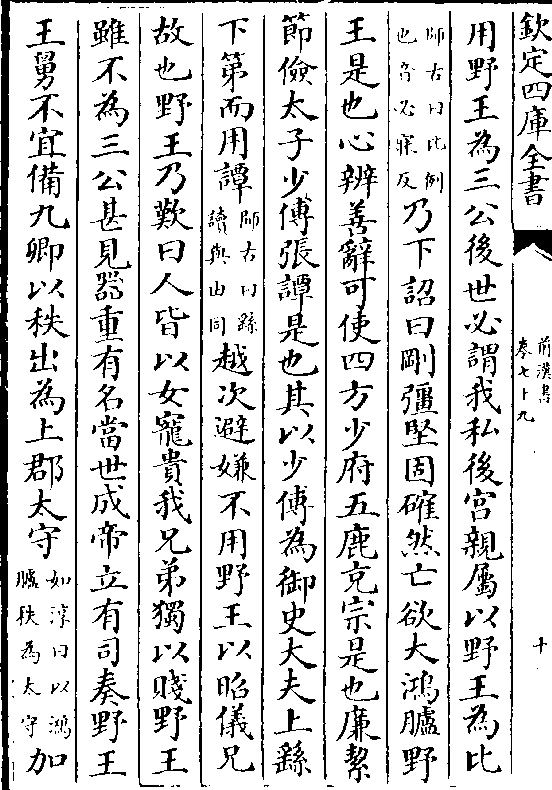 欽定四庫全書
前漢書
卷七十九
十
用野王為三公後世必謂我私後宮親屬以野王為比
師古曰比例
也音必寐反
乃下詔曰剛彊堅固確然亡欲大鴻臚野
王是也心辨善辭可使四方少府五鹿充宗是也廉㓗
節儉太子少傅張譚是也其以少傅為御史大夫上繇
下第而用譚
師古曰繇
讀與由同
越次避嫌不用野王以昭儀兄
故也野王乃歎曰人皆以女寵貴我兄弟獨以賤野王
雖不為三公甚見器重有名當世成帝立有司奏野王
王舅不宜備九卿以秩出為上郡太守
如淳曰以鴻
臚秩為太守
加